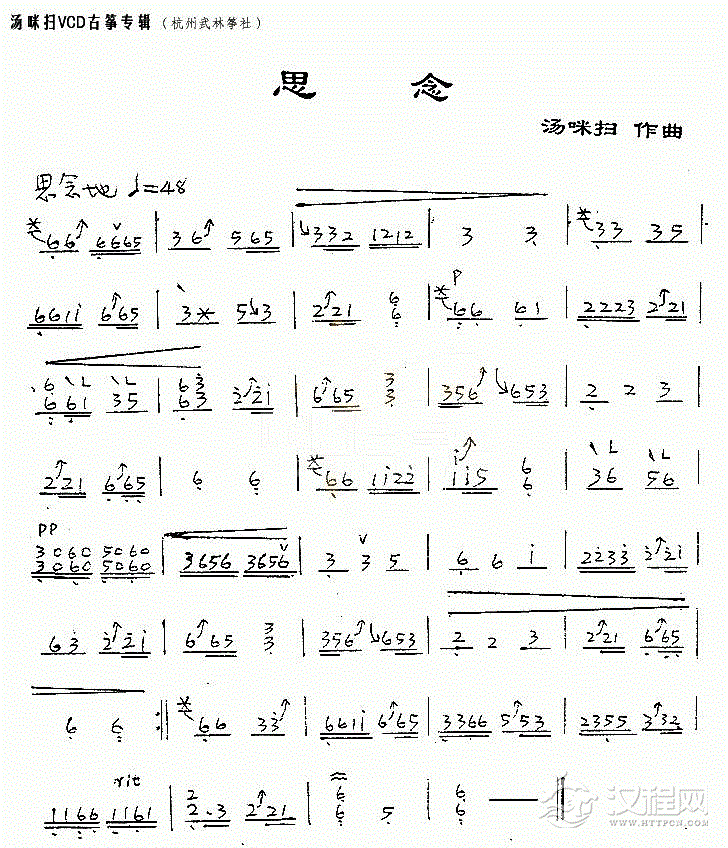 汤咪扫VCD古筝专辑（杭州武林筝社）
思 念
汤咪扫 作曲
思念地 ♩=48
66 6665 | 36 565 | 332 1212 | 3 3 | 33 35
p
6611 665 | 3* 53 | 221 6 6 | 66 61 | 2223 221
6 661 35 | 63 63 221 | 665 3 3 | 356 653 | 2 2 3
221 665 | 6 6 | 66 1122 | 1 115 6 6 | 36 56
PP
3060 5060 3060 5060 | 3656 3656 | 3 3 5 | 6 6 1 | 2233 221
63 221 | 665 3 3 | 356 653 | 2 2 3 | 221 665
6 6 :| 66 33 | 6611 665 | 3366 553 | 2355 332
rit
1166 1161 | 2 2.3 221 | 6 6 5 | 6 6 —
汉程网
WWW.HTTPCN.COM